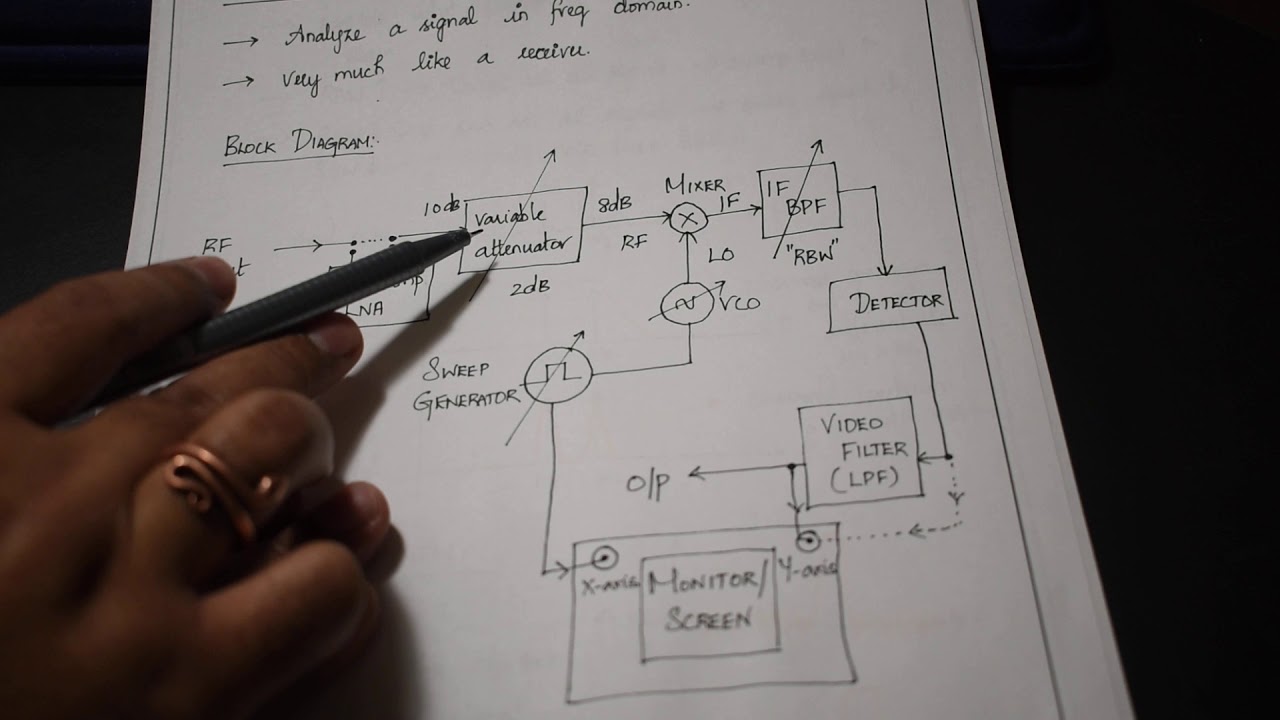 → Analyze a signal in freq domain.
→ Very much like a receiver.
BLOCK DIAGRAM:
RF
LNA
10dB
Variable
attenuator
2dB
8dB
RF
MIXER
IF
LO
VCO
IF
BPF
"RBW"
DETECTOR
SWEEP
GENERATOR
VIDEO
FILTER
(LPF)
O/p
X-axis
Y-axis
MONITOR/
SCREEN